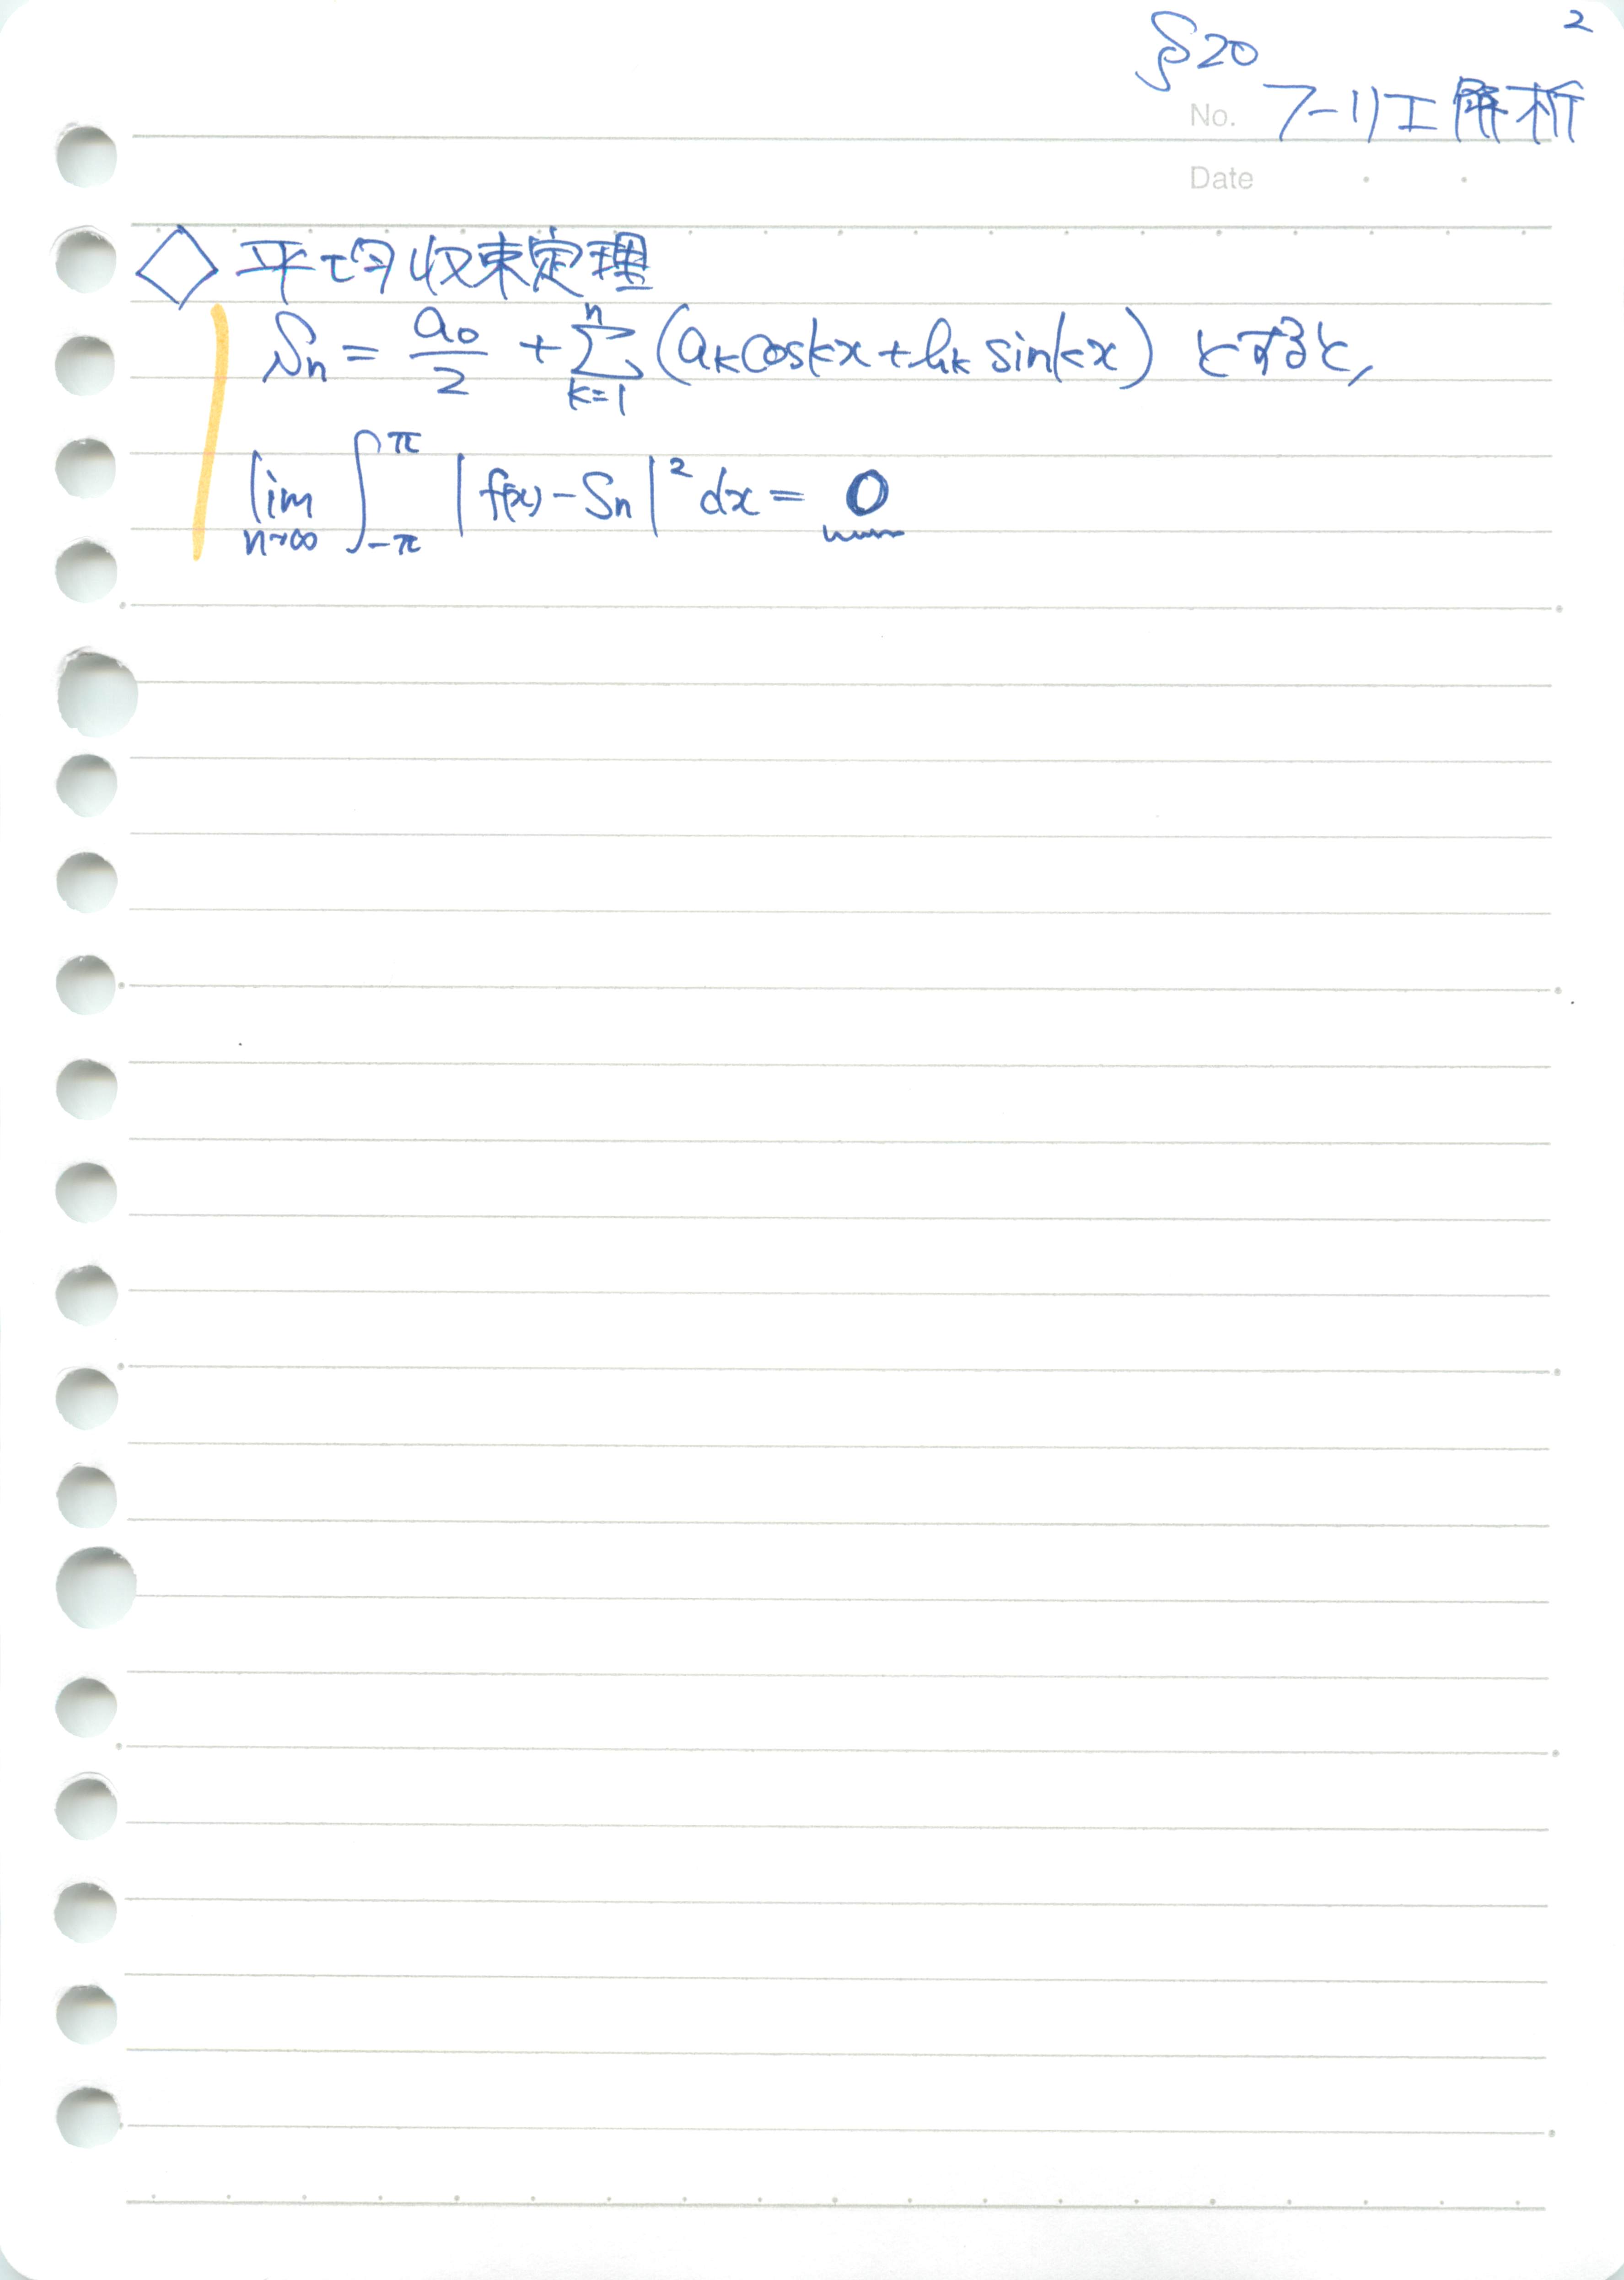 2
§20
No. フーリエ解析
Date
◇ 平均収束定理
Sn = a0/2 + Σ_{k=1}^{n} (ak cos kx + bk sin kx) とすると,
lim_{n→∞} ∫_{-π}^{π} |f(x) - Sn|² dx = 0